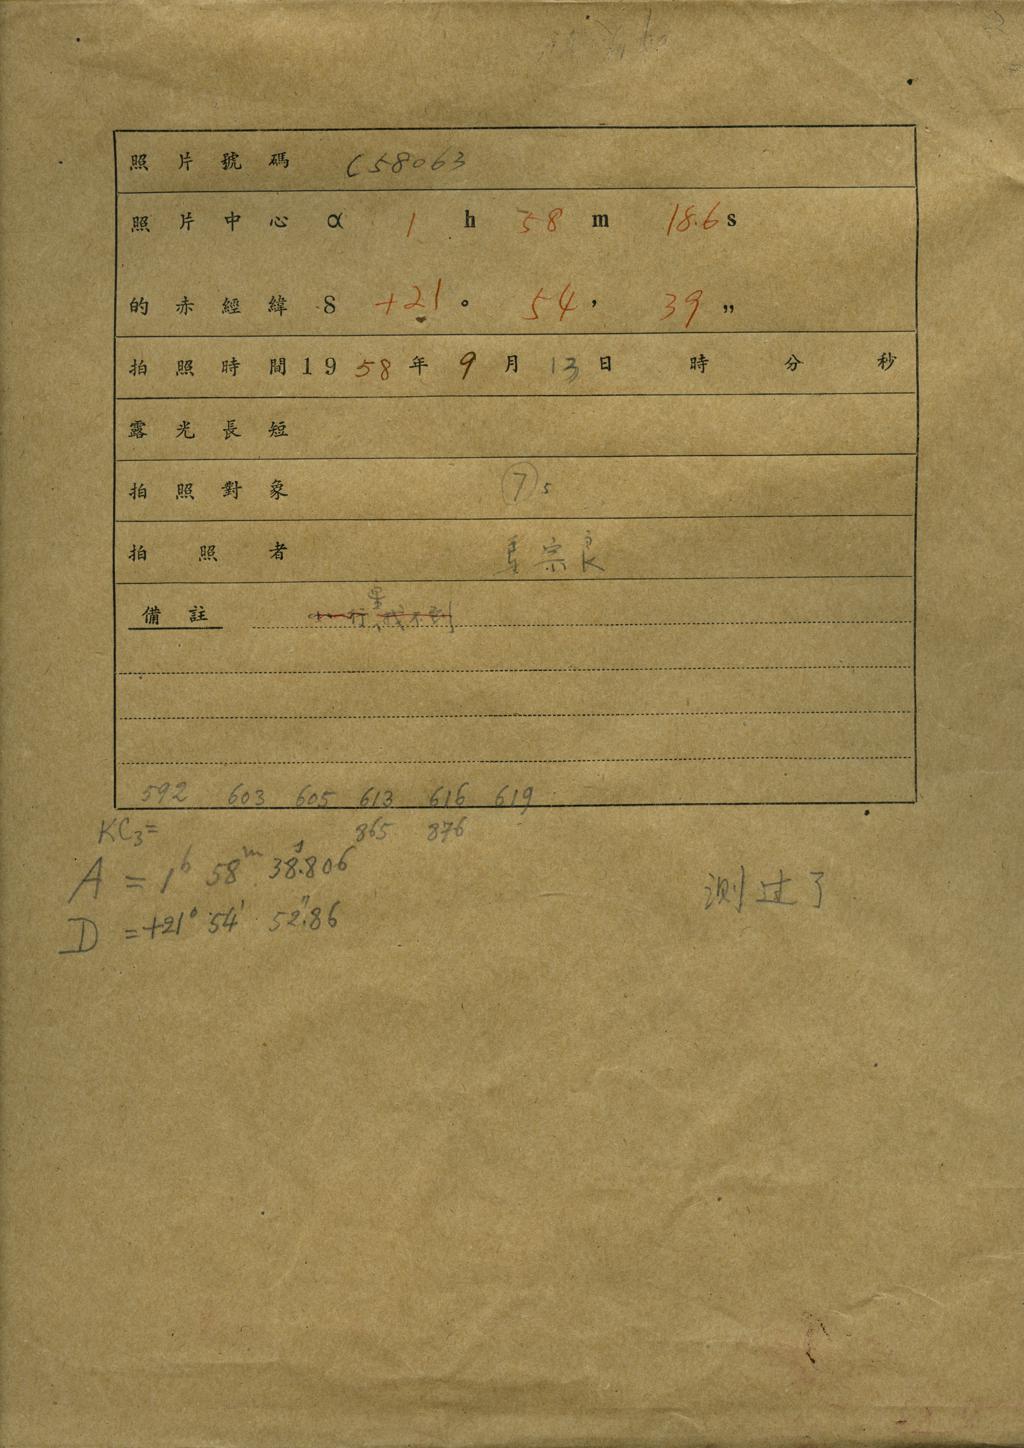 照片號碼 C58063
照片中心 α 1 h 58 m 18.6 s
的赤經緯 δ +21 ° 54 ′ 39 ″
拍照時間 19 58 年 9 月 13 日 時 分 秒
露光長短
拍照對象 ⑦ 5
拍照者 宗良
備註 小行星找不到
592 603 605 613 616 619
KC3= 865 876
A = 1h 58m 38s.806
D = +21° 54' 52".86
测过了